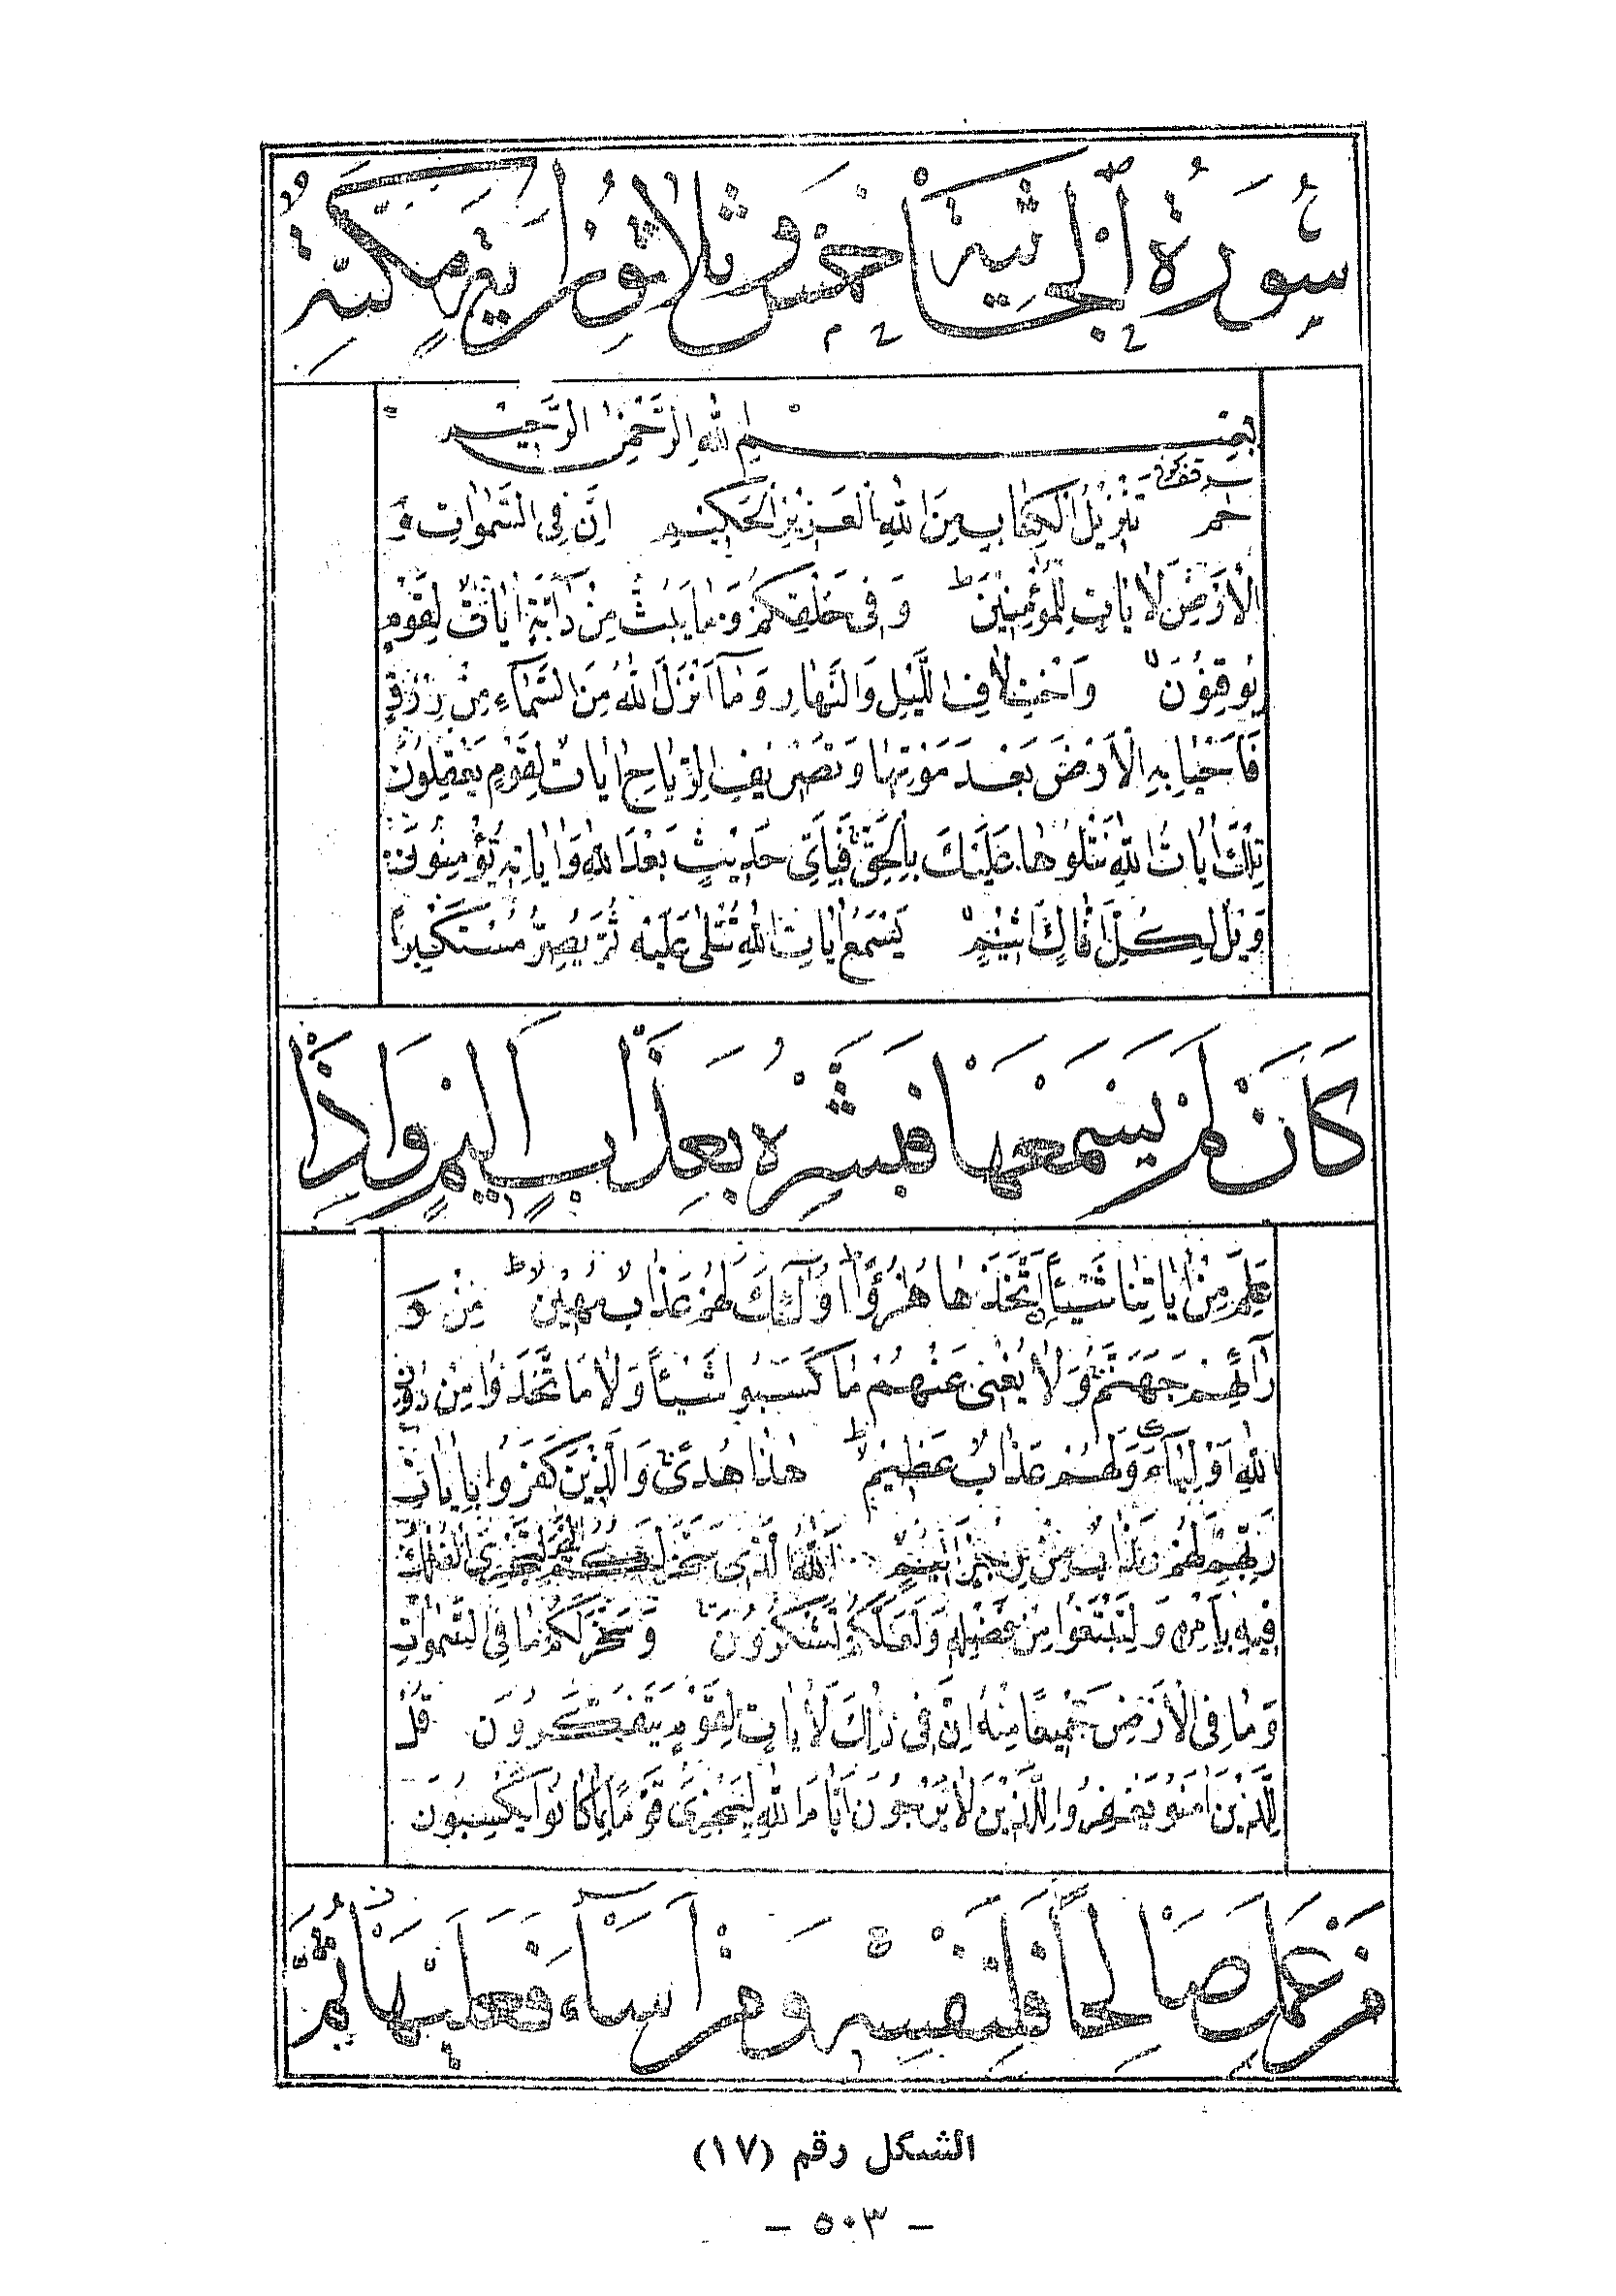 سُورَةُ الْجَاثِيَةِ خَمْسٌ وَثَلَاثُونَ اٰيَةً مَكِّيَّةٌ
بِسْمِ اللّٰهِ الرَّحْمٰنِ الرَّحِيمِ
حٰم تَنْزِيلُ الْكِتَابِ مِنَ اللّٰهِ الْعَزِيزِ الْحَكِيمِ اِنَّ فِى السَّمٰوَاتِ وَ
الْاَرْضِ لَاٰيَاتٍ لِلْمُؤْمِنِينَ ط وَفِى خَلْقِكُمْ وَمَا يَبُثُّ مِنْ دَآبَّةٍ اٰيَاتٌ لِقَوْمٍ
يُوقِنُونَ لا وَاخْتِلَافِ اللَّيْلِ وَالنَّهَارِ وَمَآ اَنْزَلَ اللّٰهُ مِنَ السَّمَآءِ مِنْ رِزْقٍ
فَاَحْيَا بِهِ الْاَرْضَ بَعْدَ مَوْتِهَا وَتَصْرِيفِ الرِّيَاحِ اٰيَاتٌ لِقَوْمٍ يَعْقِلُونَ
تِلْكَ اٰيَاتُ اللّٰهِ نَتْلُوهَا عَلَيْكَ بِالْحَقِّ فَبِاَىِّ حَدِيثٍ بَعْدَ اللّٰهِ وَاٰيَاتِهِ يُؤْمِنُونَ
وَيْلٌ لِكُلِّ اَفَّاكٍ اَثِيمٍ لا يَسْمَعُ اٰيَاتِ اللّٰهِ تُتْلٰى عَلَيْهِ ثُمَّ يُصِرُّ مُسْتَكْبِرًا
كَاَنْ لَمْ يَسْمَعْهَا فَبَشِّرْهُ بِعَذَابٍ اَلِيمٍ وَاِذَا
عَلِمَ مِنْ اٰيَاتِنَا شَيْئًا اتَّخَذَهَا هُزُوًا ط اُولٰٓئِكَ لَهُمْ عَذَابٌ مُهِينٌ ط مِنْ وَ
رَآئِهِمْ جَهَنَّمُ وَلَا يُغْنِى عَنْهُمْ مَا كَسَبُوا شَيْئًا وَلَا مَا اتَّخَذُوا مِنْ دُونِ
اللّٰهِ اَوْلِيَآءَ وَلَهُمْ عَذَابٌ عَظِيمٌ ط هٰذَا هُدًى وَالَّذِينَ كَفَرُوا بِاٰيَاتِ
رَبِّهِمْ لَهُمْ عَذَابٌ مِنْ رِجْزٍ اَلِيمٌ اَللّٰهُ الَّذِى سَخَّرَ لَكُمُ الْبَحْرَ لِتَجْرِىَ الْفُلْكُ
فِيهِ بِاَمْرِهِ وَلِتَبْتَغُوا مِنْ فَضْلِهِ وَلَعَلَّكُمْ تَشْكُرُونَ وَسَخَّرَ لَكُمْ مَا فِى السَّمٰوَاتِ
وَمَا فِى الْاَرْضِ جَمِيعًا مِنْهُ اِنَّ فِى ذٰلِكَ لَاٰيَاتٍ لِقَوْمٍ يَتَفَكَّرُونَ قُلْ
لِلَّذِينَ اٰمَنُوا يَغْفِرُوا لِلَّذِينَ لَا يَرْجُونَ اَيَّامَ اللّٰهِ لِيَجْزِىَ قَوْمًا بِمَا كَانُوا يَكْسِبُونَ
مَنْ عَمِلَ صَالِحًا فَلِنَفْسِهِ وَمَنْ اَسَآءَ فَعَلَيْهَا ثُمَّ
الشكل رقم (١٧)
- ٥٠٣ -